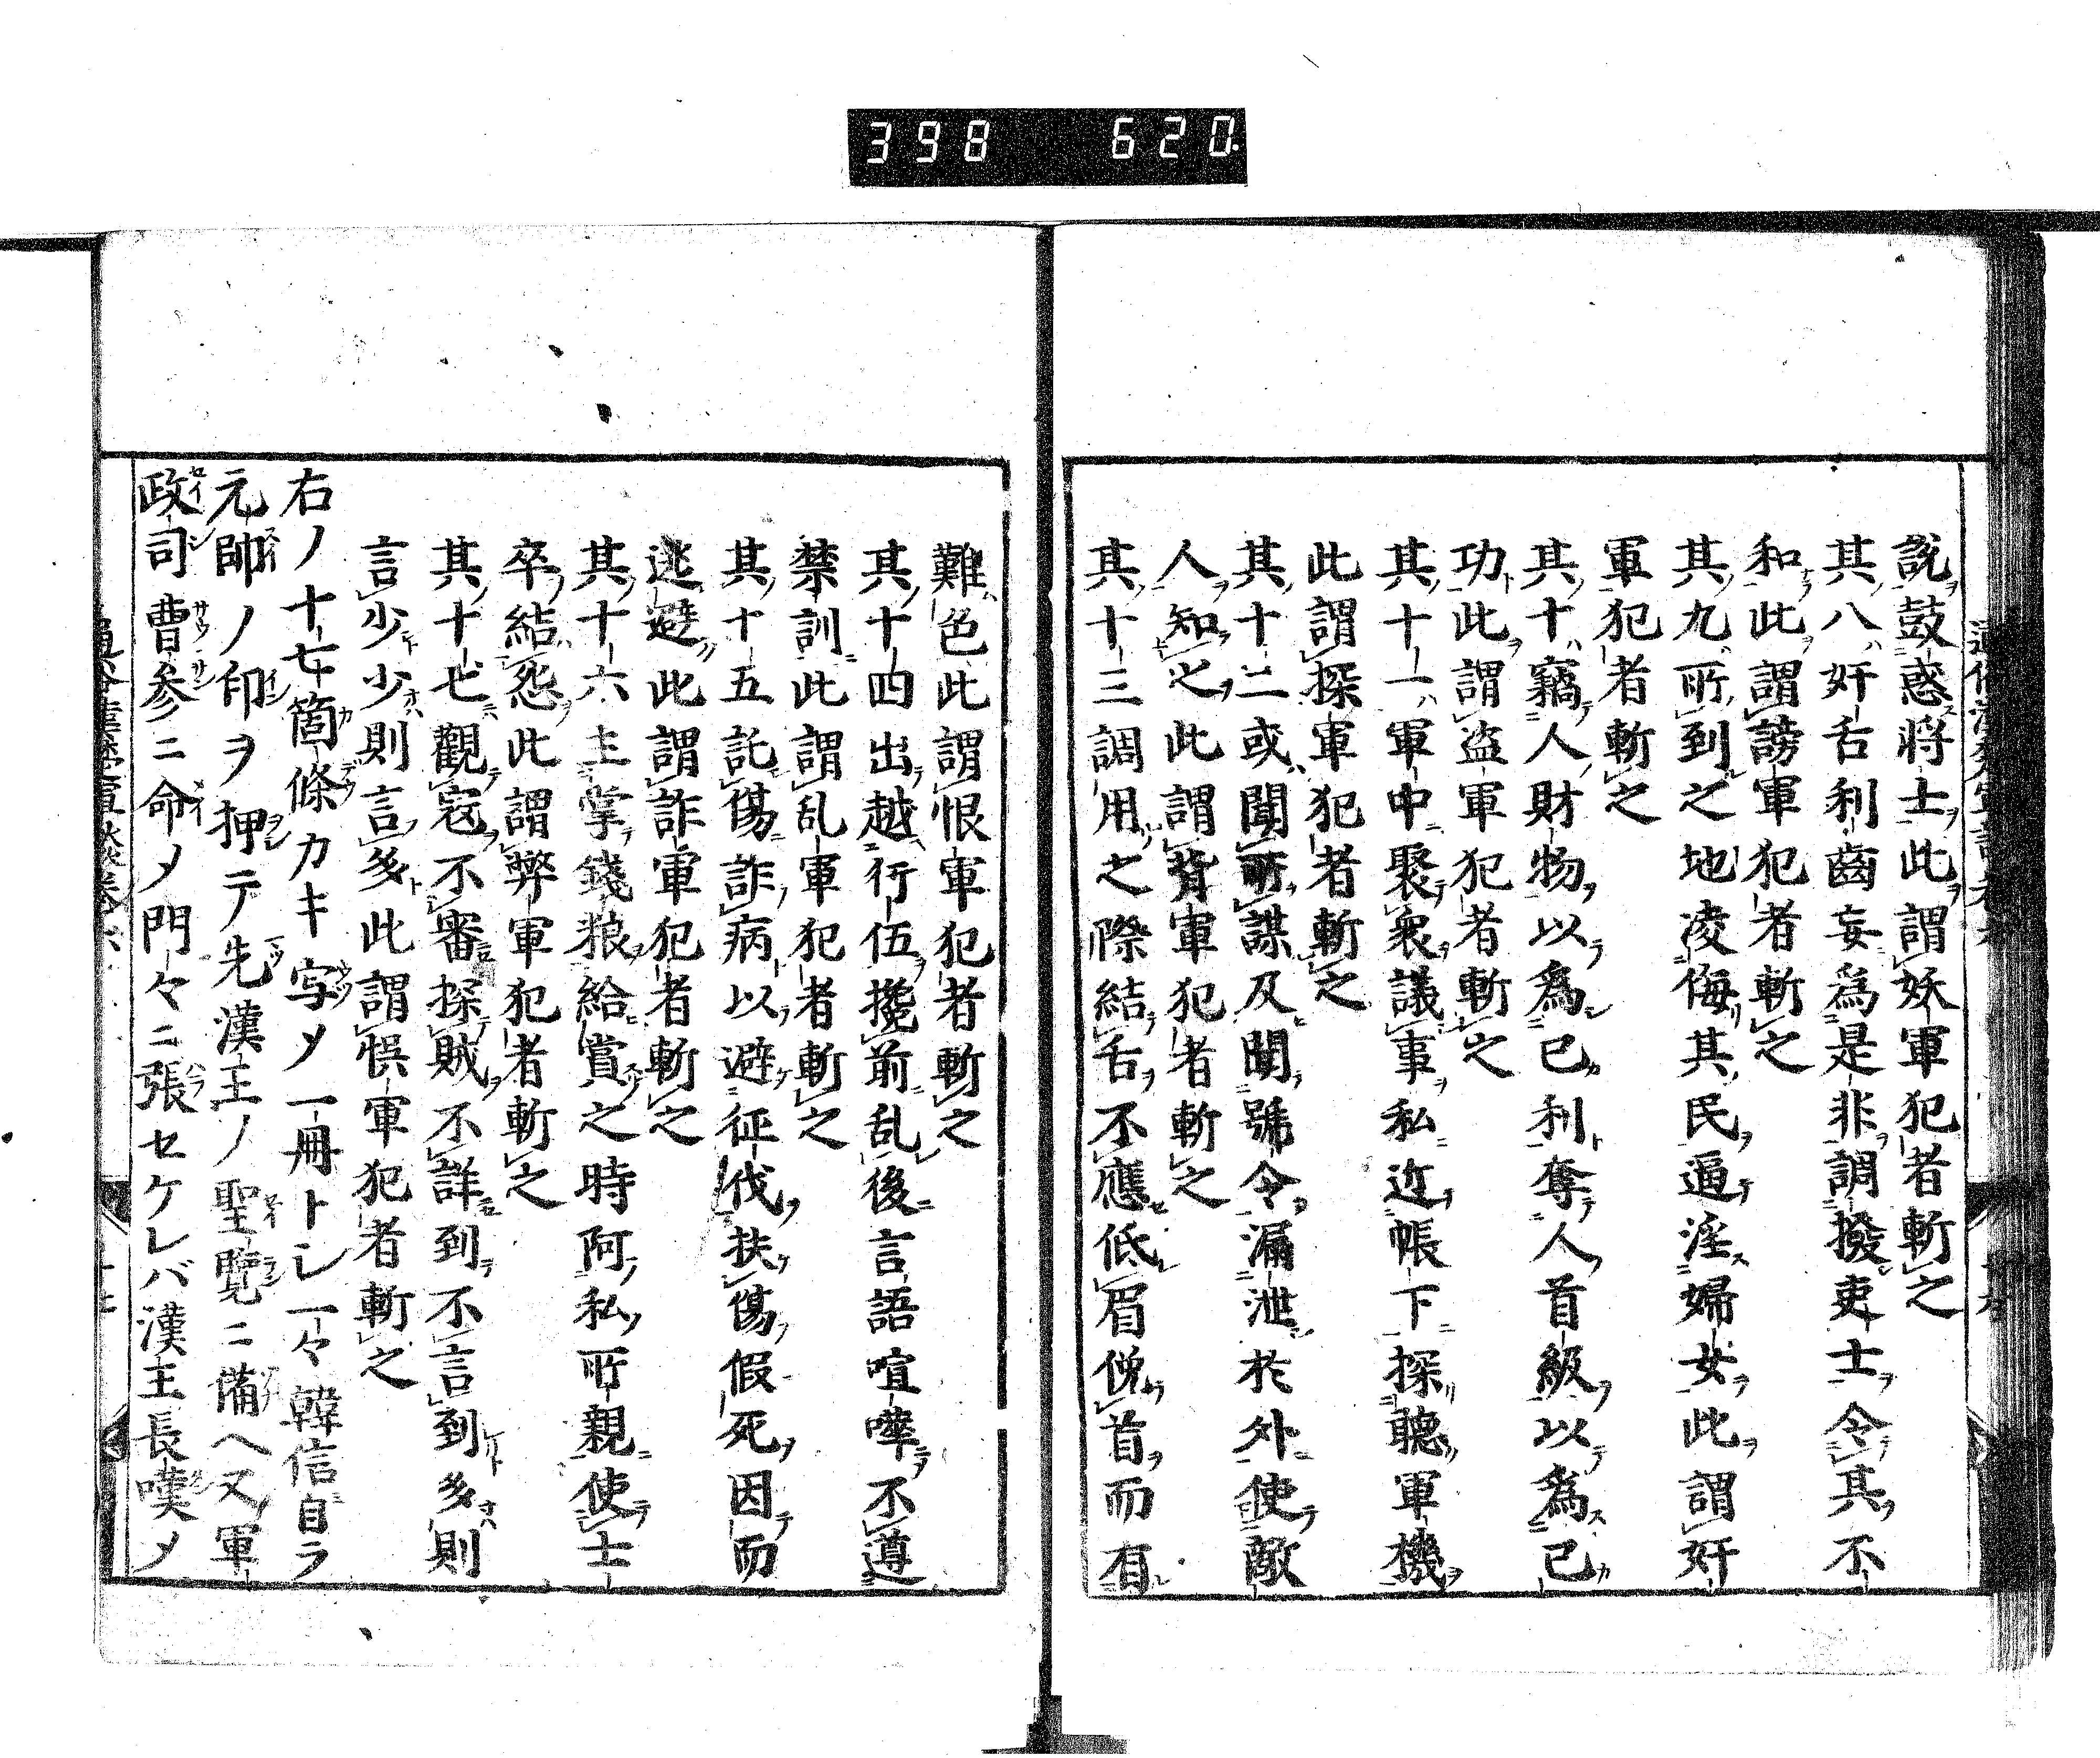 398 620
説鼓惑將士此謂妖軍犯者斬之
其八奸舌利齒妄爲是非調撥吏士令其不
和此謂謗軍犯者斬之
其九所到之地凌侮其民逼淫婦女此謂奸
軍犯者斬之
其十竊人財物以爲己利奪人首級以爲己
功此謂盗軍犯者斬之
其十一軍中聚衆議事私近帳下探聽軍機
此謂探軍犯者斬之
其十二或聞所謀及聞號令漏泄於外使敵
人知之此謂背軍犯者斬之
其十三調用之際結舌不應低眉俛首而有
難色此謂恨軍犯者斬之
其十四出越行伍攙前乱後言語喧嘩不遵
禁訓此謂乱軍犯者斬之
其十五託傷詐病以避征伐扶傷假死因而
逃避此謂詐軍犯者斬之
其十六主掌錢粮給賞之時阿私所親使士
卒結怨此謂弊軍犯者斬之
其十七觀寇不審探賊不詳到不言到多則
言少少則言多此謂悞軍犯者斬之
右ノ十七箇條カキ写メ一冊トシ一々韓信自ラ
元帥ノ印ヲ押テ先漢王ノ聖覽ニ備ヘ又軍
政司曹参ニ命メ門々ニ張セケレバ漢王長嘆メ